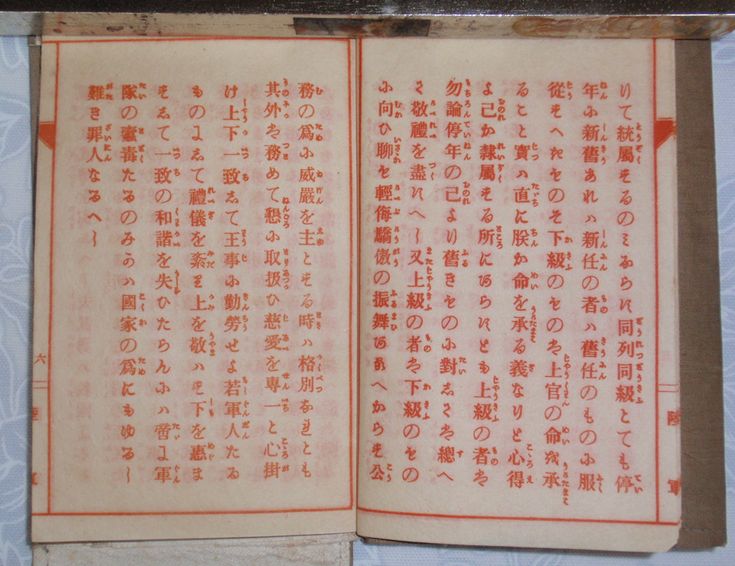 りて統屬するのみならす同列同級とても停
年に新舊あれは新任の者は舊任のものに服
從すへきものそ下級のものは上官の命を承
ること實は直に朕か命を承る義なりと心得
よ己か隷屬する所にあらすとも上級の者は
勿論停年の己より舊きものに對しては總へ
て敬禮を盡すへし又上級の者は下級のもの
に向ひ聊も輕侮驕傲の振舞あるへからす公
務の爲に威嚴を主とする時は格別なれとも
其外は務めて懇に取扱ひ慈愛を專一と心掛
け上下一致して王事に勤勞せよ若軍人たる
ものにして禮儀を紊り上を敬はす下を惠ま
すして一致の和諧を失ひたらんには啻に軍
隊の蠹毒たるのみかは國家の爲にもゆるし
難き罪人なるへし
陸軍
六
陸軍